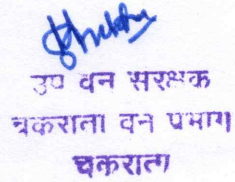 उप वन सरक्षक
चकराता वन प्रभाग
चकराता